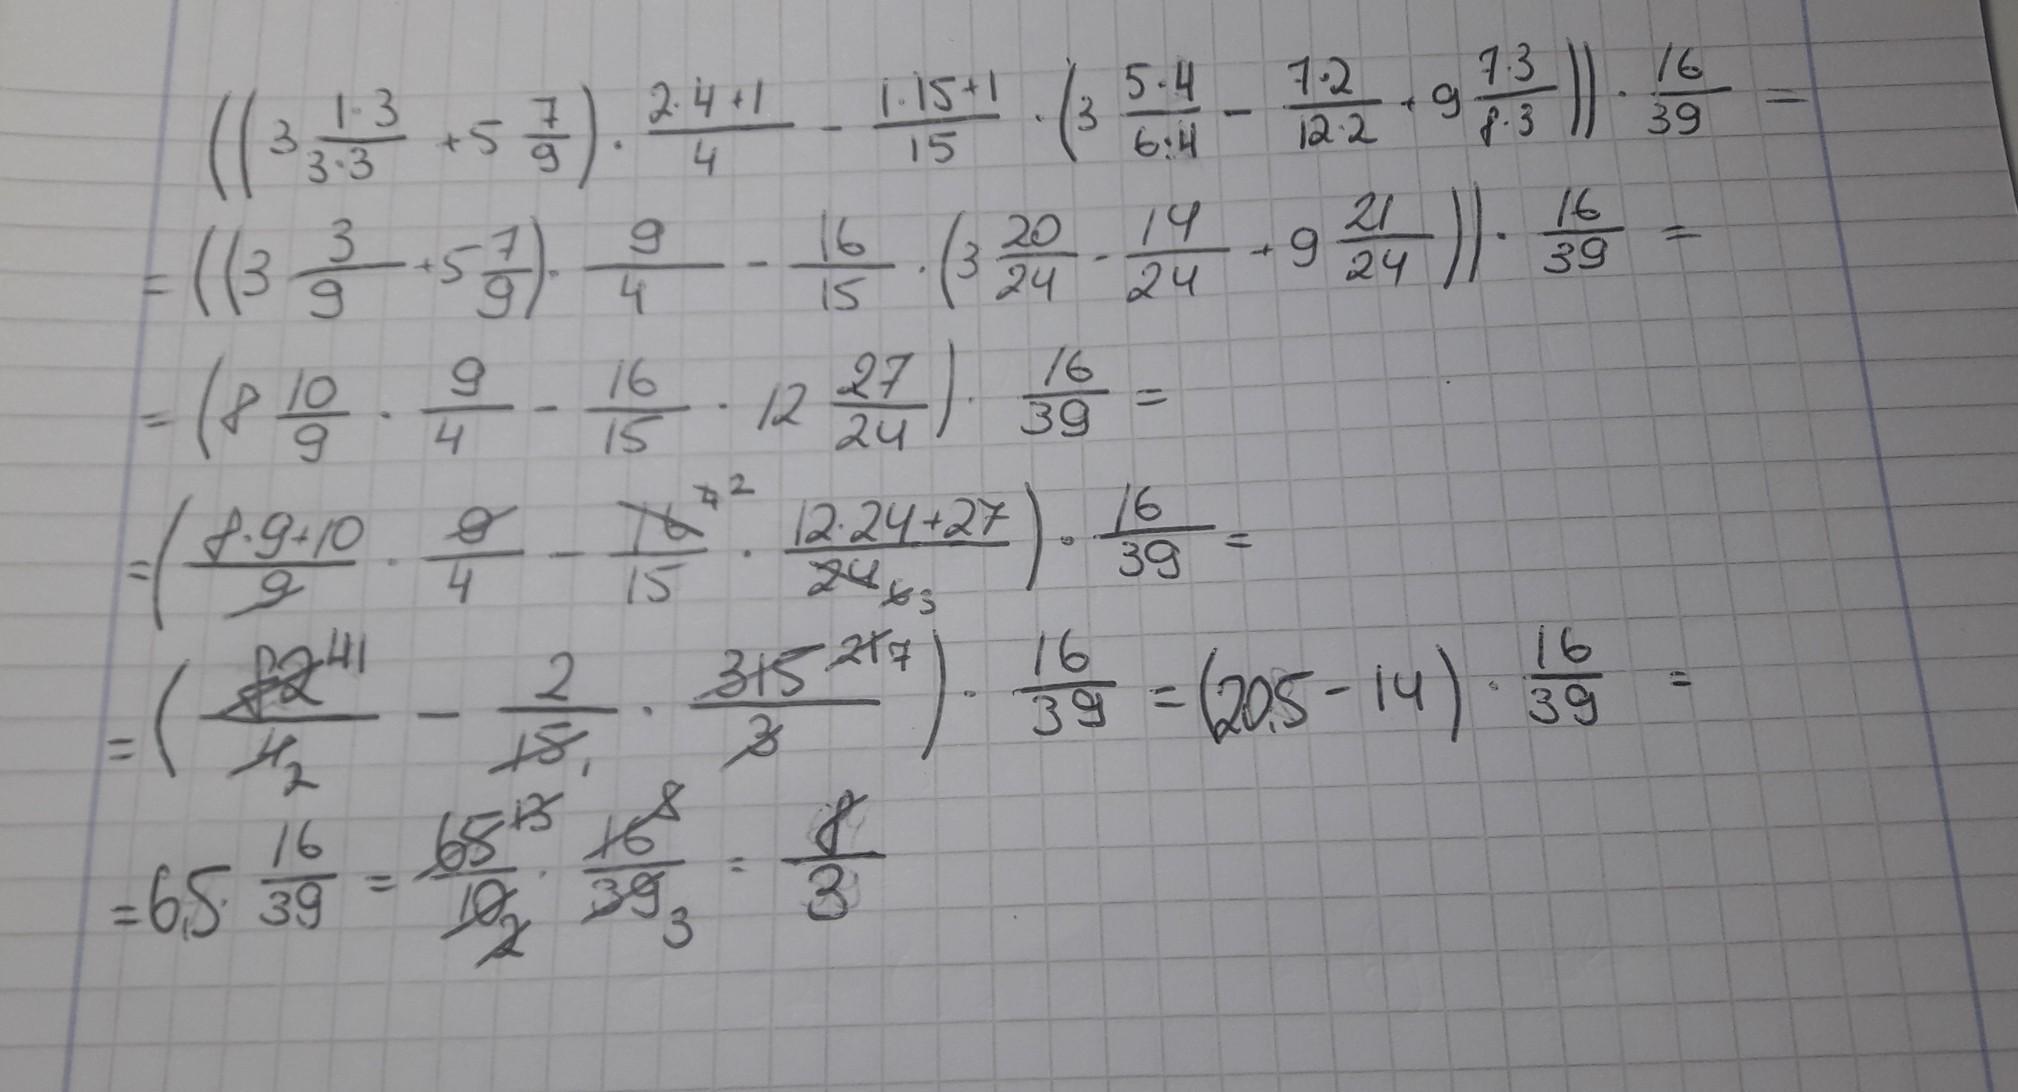 ((3 1·3/3·3 + 5 7/9) · 2·4+1/4 - 1·15+1/15 · (3 5·4/6·4 - 7·2/12·2 + 9 7·3/8·3)) · 16/39 =
= ((3 3/9 + 5 7/9) · 9/4 - 16/15 · (3 20/24 - 14/24 + 9 21/24)) · 16/39 =
= (8 10/9 · 9/4 - 16/15 · 12 27/24) · 16/39 =
= (8·9+10/9 · 9/4 - 16 4 2/15 · 12·24+27/24 6 3) · 16/39 =
= (82 41/4 2 - 2/15 1 · 315 21 7/3) · 16/39 = (20,5 - 14) · 16/39 =
= 6,5 · 16/39 = 65 13/10 2 · 16 8/39 3 = 8/3